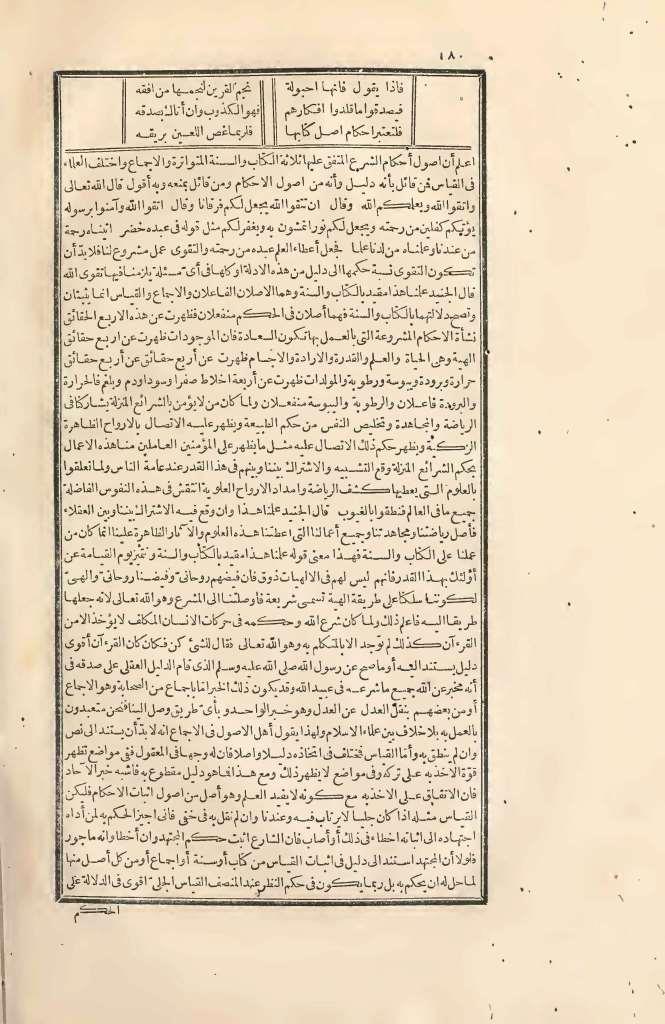 ١٨٠
فاذا يقول فانها احبولة نجم القرين لنجمها من افقه
فيصدقوا ما قلدوا افكارهم فهو الكذوب وان أتاك بصدقه
فلتعتبر احكام اصل كتابها فلربما غص اللعين بريقه
اعلم أن اصول أحكام الشرع المتفق عليها ثلاثة الكتاب والسنة المتواترة والاجماع واختلف العلماء
فى القياس فمن قائل بأنه دليل وأنه من اصول الاحكام ومن قائل بمنعه وبه أقول قال الله تعالى
واتقوا الله ويعلمكم الله وقال ان تتقوا الله يجعل لكم فرقانا وقال اتقوا الله وآمنوا برسوله
يؤتكم كفلين من رحمته ويجعل لكم نورا تمشون به ويغفر لكم مثل قوله فى عبده خضر اتيناه رحمة
من عندنا وعلمناه من لدنا علما فجعل أعطاء العلم عبده من رحمته والتقوى عمل مشروع لنا فلابد أن
تكون التقوى نسبة حكمها الى دليل من هذه الادلة او كلها فى أى مسئلة يلزمنا فيها تقوى الله
قال الجنيد علمنا هذا مقيد بالكتاب والسنة وهما الاصلان الفاعلان والاجماع والقياس انما يثبتان
وتصح دلالتهما بالكتاب والسنة فهما أصلان فى الحكم منفعلان فظهرت عن هذه الاربع الحقائق
نشأة الاحكام المشروعة التى بالعمل بها تكون السعادة فان الموجودات ظهرت عن اربع حقائق
الهية وهى الحياة والعلم والقدرة والارادة والاجسام ظهرت عن أربع حقائق عن أربع حقائق
حرارة وبرودة ويبوسة ورطوبة والمولدات ظهرت عن أربعة اخلاط صفرا وسودا ودم وبلغم فالحرارة
والبرودة فاعلان والرطوبة واليبوسة منفعلان ولما كان من لا يؤمن بالشرائع المنزلة يشاركنا فى
الرياضة والمجاهدة وتخليص النفس من حكم الطبيعة ويظهر عليه الاتصال بالارواح الطاهرة
الزكية ويظهر حكم ذلك الاتصال عليه مثل ما يظهر على المؤمنين العاملين منا هذه الاعمال
بحكم الشرائع المنزلة وقع التشبيه والاشتراك بيننا وبينهم فى هذا القدر عند عامة الناس ولما تعلقوا
بالعلوم التى يعطيها كشف الرياضة وامداد الارواح العلوية انتقش فى هذه النفوس الفاضلة
جميع ما فى العالم فنطقوا بالغيوب قال الجنيد علمنا هذا وان وقع فيه الاشتراك بيننا وبين العقلاء
فأصل رياضتنا ومجاهدتنا وجميع أعمالنا التى اعطتنا هذه العلوم والآثار الظاهرة علينا انما كان من
عملنا على الكتاب والسنة فهذا معنى قوله علمنا هذا مقيد بالكتاب والسنة ونتميز يوم القيامة عن
أولئك بهذا القدر فانهم ليس لهم فى الالهيات ذوق فان فيضهم روحانى وفيضنا روحانى والهى
لكوننا سلكنا على طريقة الهية تسمى شريعة فاوصلتنا الى المشرع وهو الله تعالى لانه جعلها
طريقا اليه فاعلم ذلك ولما كان شرع الله وحكمه فى حركات الانسان المكلف لا يؤخذ الا من
القرءآن كذلك لم توجد الا بالمتكلم به وهو الله تعالى فقال للشئ كن فكان كان القرءآن أقوى
دليل يستند اليه أو ما صح عن رسول الله صلى الله عليه وسلم الذى قام الدليل العقلى على صدقه فى
أنه مخبر عن الله جميع ما شرعه فى عبيد الله وقد يكون ذلك الخبر اما باجماع من الصحابة وهو الاجماع
أو من بعضهم بنقل العدل عن العدل وهو خبر الواحد وبأى طريق وصل الينا فنحن متعبدون
بالعمل به بلا خلاف بين علماء الاسلام ولهذا يقول أهل الاصول فى الاجماع انه لا بد أن يستند الى نص
وان لم ينطق به وأما القياس فمختلف فى اتخاذه دليلا واصلا فان له وجها فى المعقول ففى مواضع تظهر
قوة الاخذ به على تركه وفى مواضع لا يظهر ذلك ومع هذا فما هو دليل مقطوع به فاشبه خبر الآحاد
فان الاتفاق على الاخذ به مع كونه لا يفيد العلم وهو أصل من اصول اثبات الاحكام فليكن
القياس مثله اذا كان جليا لا يرتاب فيه وعندنا وان لم نقل به فى حقى فانى اجيز الحكم به لمن أداه
اجتهاده الى اثباته اخطاء فى ذلك أو أصاب فان الشارع اثبت حكم المجتهد وان أخطأ وانه ماجور
فلولا أن المجتهد استند الى دليل فى اثبات القياس من كتاب أو سنة أو اجماع أو من كل أصل منها
لما حل له ان يحكم به بل ربما يكون فى حكم النظر عند المنصف القياس الجلى اقوى فى الدلالة على
الحكم